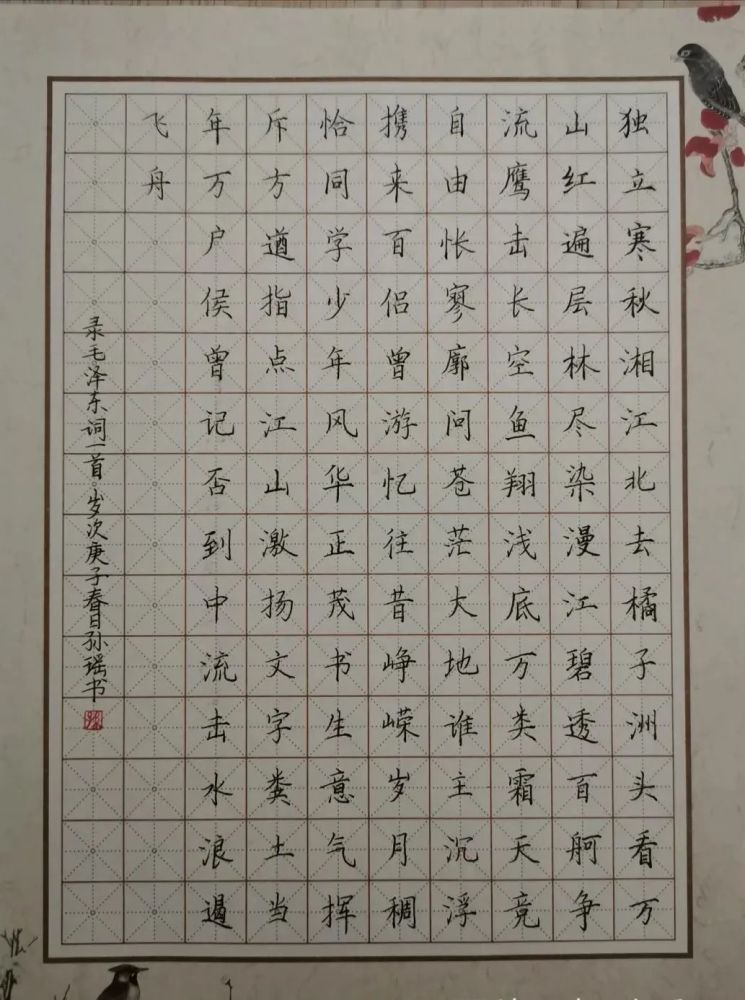 独立寒秋湘江北去橘子洲头看万
山红遍层林尽染漫江碧透百舸争
流鹰击长空鱼翔浅底万类霜天竞
自由怅寥廓问苍茫大地谁主沉浮
携来百侣曾游忆往昔峥嵘岁月稠
恰同学少年风华正茂书生意气挥
斥方遒指点江山激扬文字粪土当
年万户侯曾记否到中流击水浪遏
飞舟
录毛泽东词一首岁次庚子春日孙瑶书